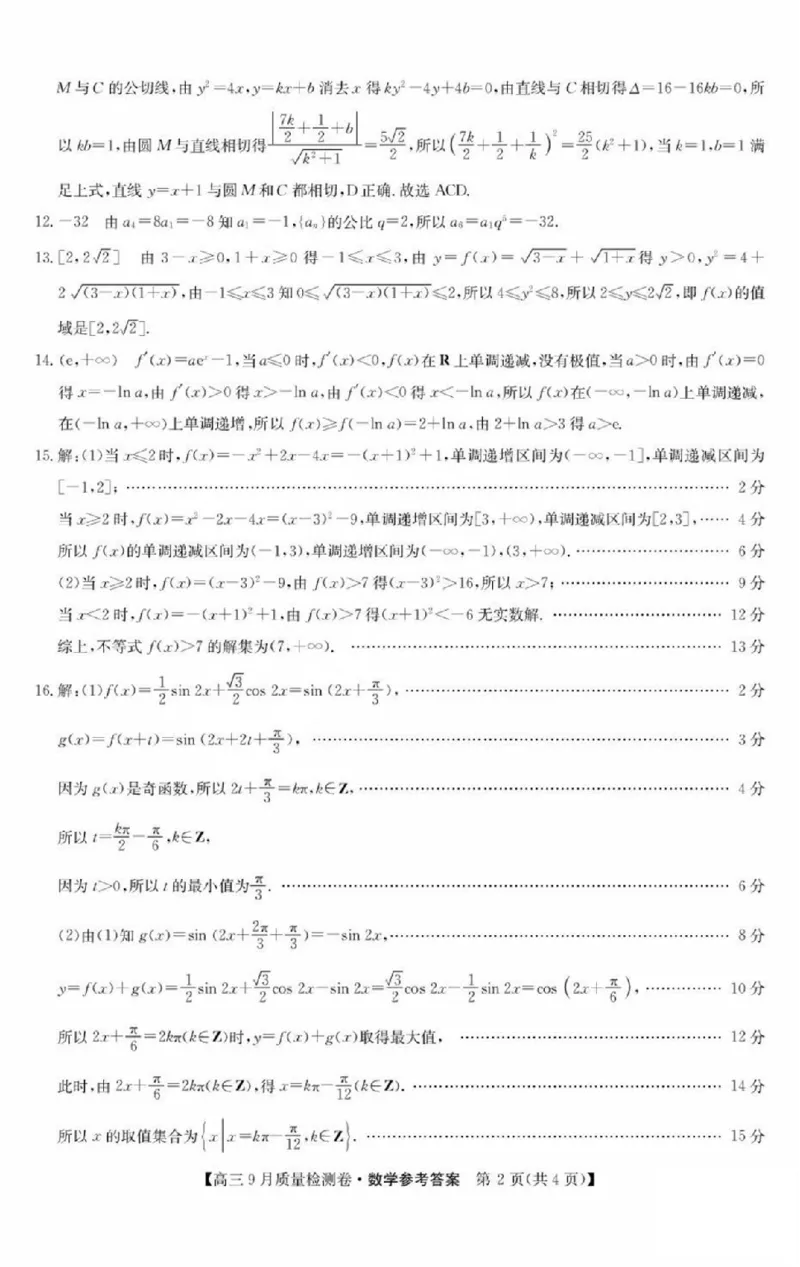 M与C的公切线,由 y²=4x,y=kx+b 消去 x 得 ky²-4y+4b=0,由直线与C相切得Δ=16-16kb=0,所
以 kb=1,由圆M与直线相切得 |7k/2+1/2+b|/√(k²+1)=5√2/2,所以(7k/2+1/2+1/k)²=25/2(k²+1),当 k=1,b=1 满
足上式,直线 y=x+1 与圆M和C都相切,D正确.故选 ACD.
12. -32 由 a₄=8a₁=-8 知 a₁=-1,{aₙ}的公比 q=2,所以 a₆=a₁q⁵=-32.
13. [2,2√2] 由 3-x≥0,1+x≥0 得-1≤x≤3,由 y=f(x)=√(3-x)+√(1+x)得 y>0,y²=4+
2√((3-x)(1+x)),由-1≤x≤3 知 0≤√((3-x)(1+x))≤2,所以 4≤y²≤8,所以 2≤y≤2√2,即 f(x)的值
域是[2,2√2].
14. (e,+∞) f′(x)=aeˣ-1,当 a≤0 时,f′(x)<0,f(x)在 R 上单调递减,没有极值,当 a>0 时,由 f′(x)=0
得 x=-ln a,由 f′(x)>0 得 x>-ln a,由 f′(x)<0 得 x<-ln a,所以 f(x)在(-∞,-ln a)上单调递减,
在(-ln a,+∞)上单调递增,所以 f(x)≥f(-ln a)=2+ln a,由 2+ln a>3 得 a>e.
15. 解:(1)当 x≤2 时,f(x)=-x²+2x-4x=-(x+1)²+1,单调递增区间为(-∞,-1],单调递减区间为
[-1,2]; …… 2分
当 x≥2 时,f(x)=x²-2x-4x=(x-3)²-9,单调递增区间为[3,+∞),单调递减区间为[2,3], …… 4分
所以 f(x)的单调递减区间为(-1,3),单调递增区间为(-∞,-1),(3,+∞). …… 6分
(2)当 x≥2 时,f(x)=(x-3)²-9,由 f(x)>7 得(x-3)²>16,所以 x>7; …… 9分
当 x<2 时,f(x)=-(x+1)²+1,由 f(x)>7 得(x+1)²<-6 无实数解. …… 12分
综上,不等式 f(x)>7 的解集为(7,+∞). …… 13分
16. 解:(1)f(x)=1/2 sin 2x+√3/2 cos 2x=sin (2x+π/3), …… 2分
g(x)=f(x+t)=sin (2x+2t+π/3), …… 3分
因为 g(x)是奇函数,所以 2t+π/3=kπ,k∈Z, …… 4分
所以 t=kπ/2-π/6,k∈Z,
因为 t>0,所以 t 的最小值为π/3. …… 6分
(2)由(1)知 g(x)=sin (2x+2π/3+π/3)=-sin 2x, …… 8分
y=f(x)+g(x)=1/2 sin 2x+√3/2 cos 2x-sin 2x=√3/2 cos 2x-1/2 sin 2x=cos (2x+π/6), …… 10分
所以 2x+π/6=2kπ(k∈Z)时,y=f(x)+g(x)取得最大值, …… 12分
此时,由 2x+π/6=2kπ(k∈Z),得 x=kπ-π/12(k∈Z). …… 14分
所以 x 的取值集合为{x|x=kπ-π/12,k∈Z}. …… 15分
【高三9月质量检测卷·数学参考答案 第2页(共4页)】